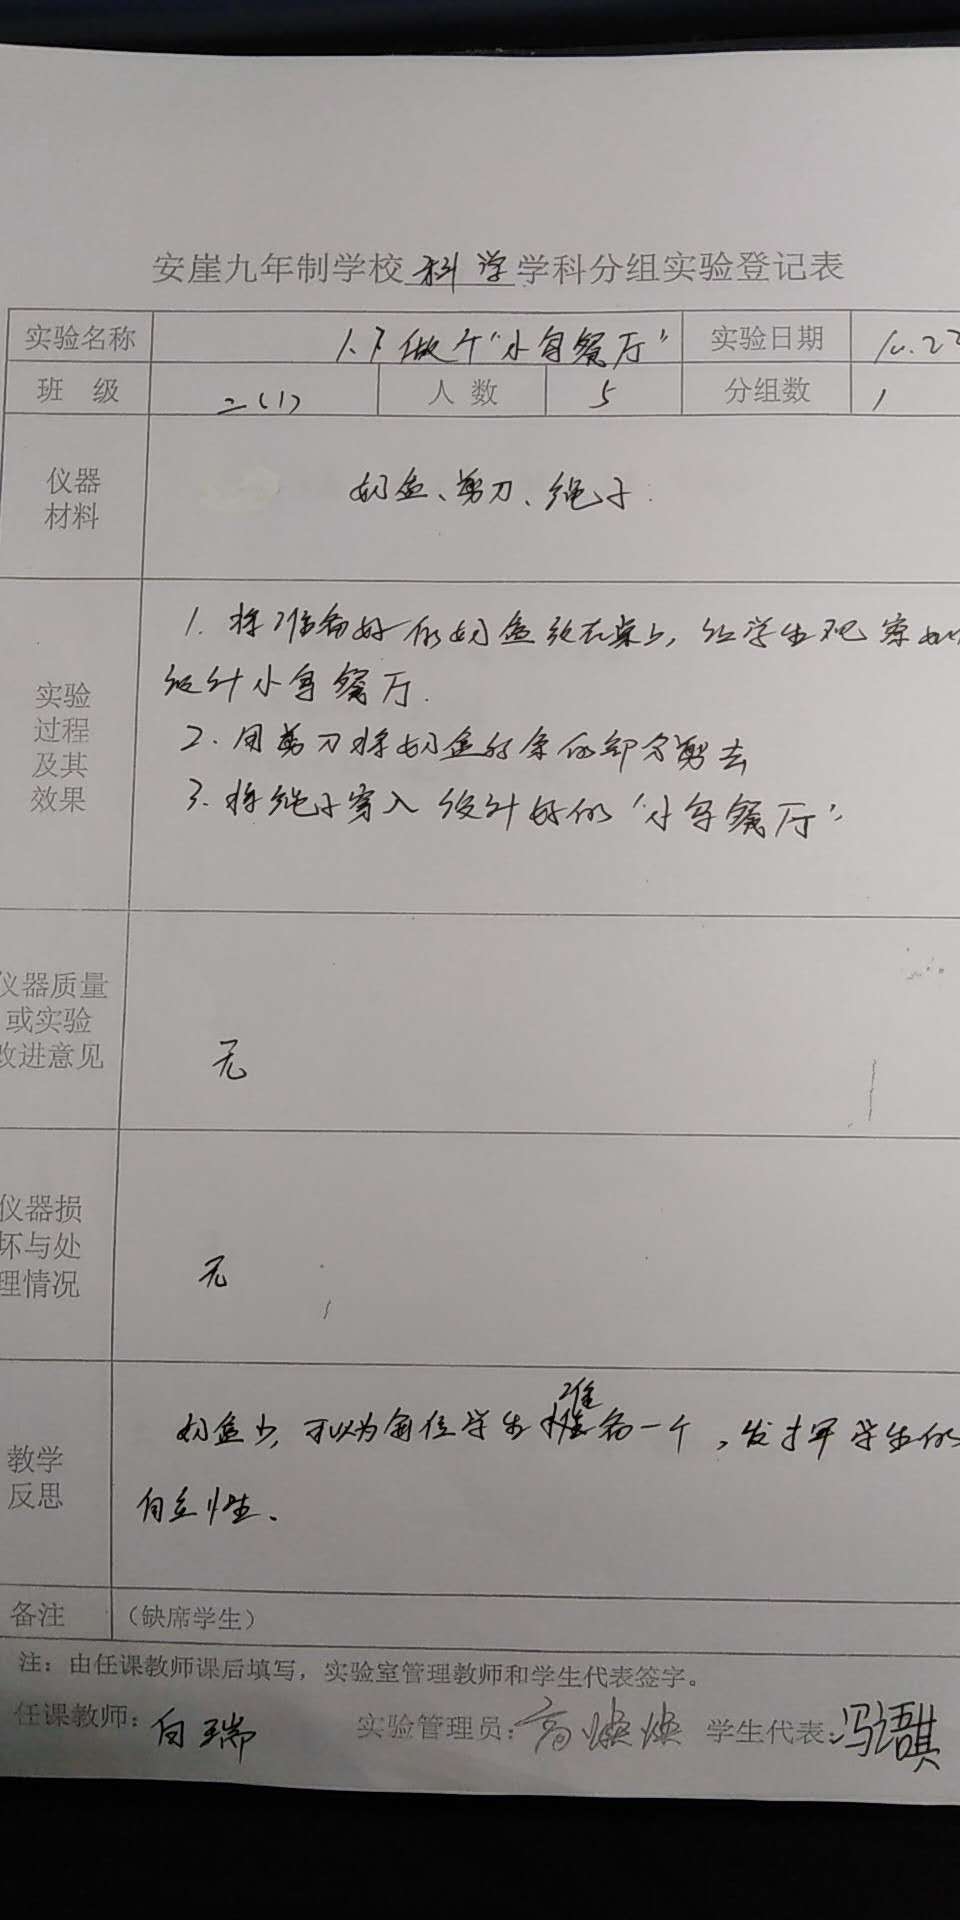 安崖九年制学校 科学 学科分组实验登记表
实验名称 1.7 做个“小自餐厅” 实验日期 10.22
班 级 二(1) 人 数 5 分组数 1
仪器
材料
奶盒、剪刀、绳子.
实验
过程
及其
效果
1. 将准备好的奶盒放在桌上, 让学生观察如
设计小鸟餐厅.
2. 用剪刀将奶盒的部分剪去
3. 将绳子穿入设计好的“小鸟餐厅”
仪器质量
或实验
改进意见
无
仪器损
坏与处
理情况
无
教学
反思
奶盒少, 可以为每位学生准备一个, 发挥学生的
自主性.
备注 (缺席学生)
注: 由任课教师课后填写, 实验室管理教师和学生代表签字。
任课教师: 白瑞 实验管理员: 高焕焕 学生代表: 冯语琪